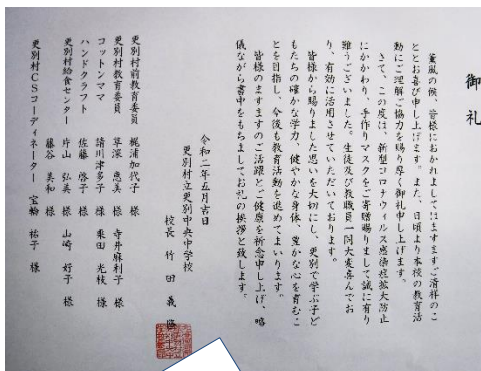 御礼
薫風の候、皆様におかれましてはますますご清祥のこ
ととお喜び申し上げます。また、日頃より本校の教育活
動にご理解ご協力を賜り厚く御礼申し上げます。
さて、この度は、新型コロナウィルス感染症拡大防止
にかかわり、手作りマスクをご寄贈賜りまして誠に有り
難うございました。生徒及び教職員一同大変喜んでお
り、有効に活用させていただいております。
皆様から賜りました思いを大切にし、更別で学ぶ子ど
もたちの確かな学力、健やかな身体、豊かな心を育むこ
とを目指し、今後も教育活動を進めてまいります。
皆様のますますのご活躍とご健康を祈念申し上げ、略
儀ながら書中をもちましてお礼の挨拶と致します。
令和二年五月吉日
更別村立更別中央中学校
校長 竹田 義
更別村前教育委員 梶浦加代子 様
更別村教育委員 草深 恵美 様 寺井麻利子 様
コットンママ 請川津多子 様 栗田 光枝 様
ハンドクラフト 佐藤 啓子 様
更別村給食センター 片山 弘美 様 山崎 好子 様
藤谷 美和 様
更別村CSコーディネーター 宝輪 祐子 様